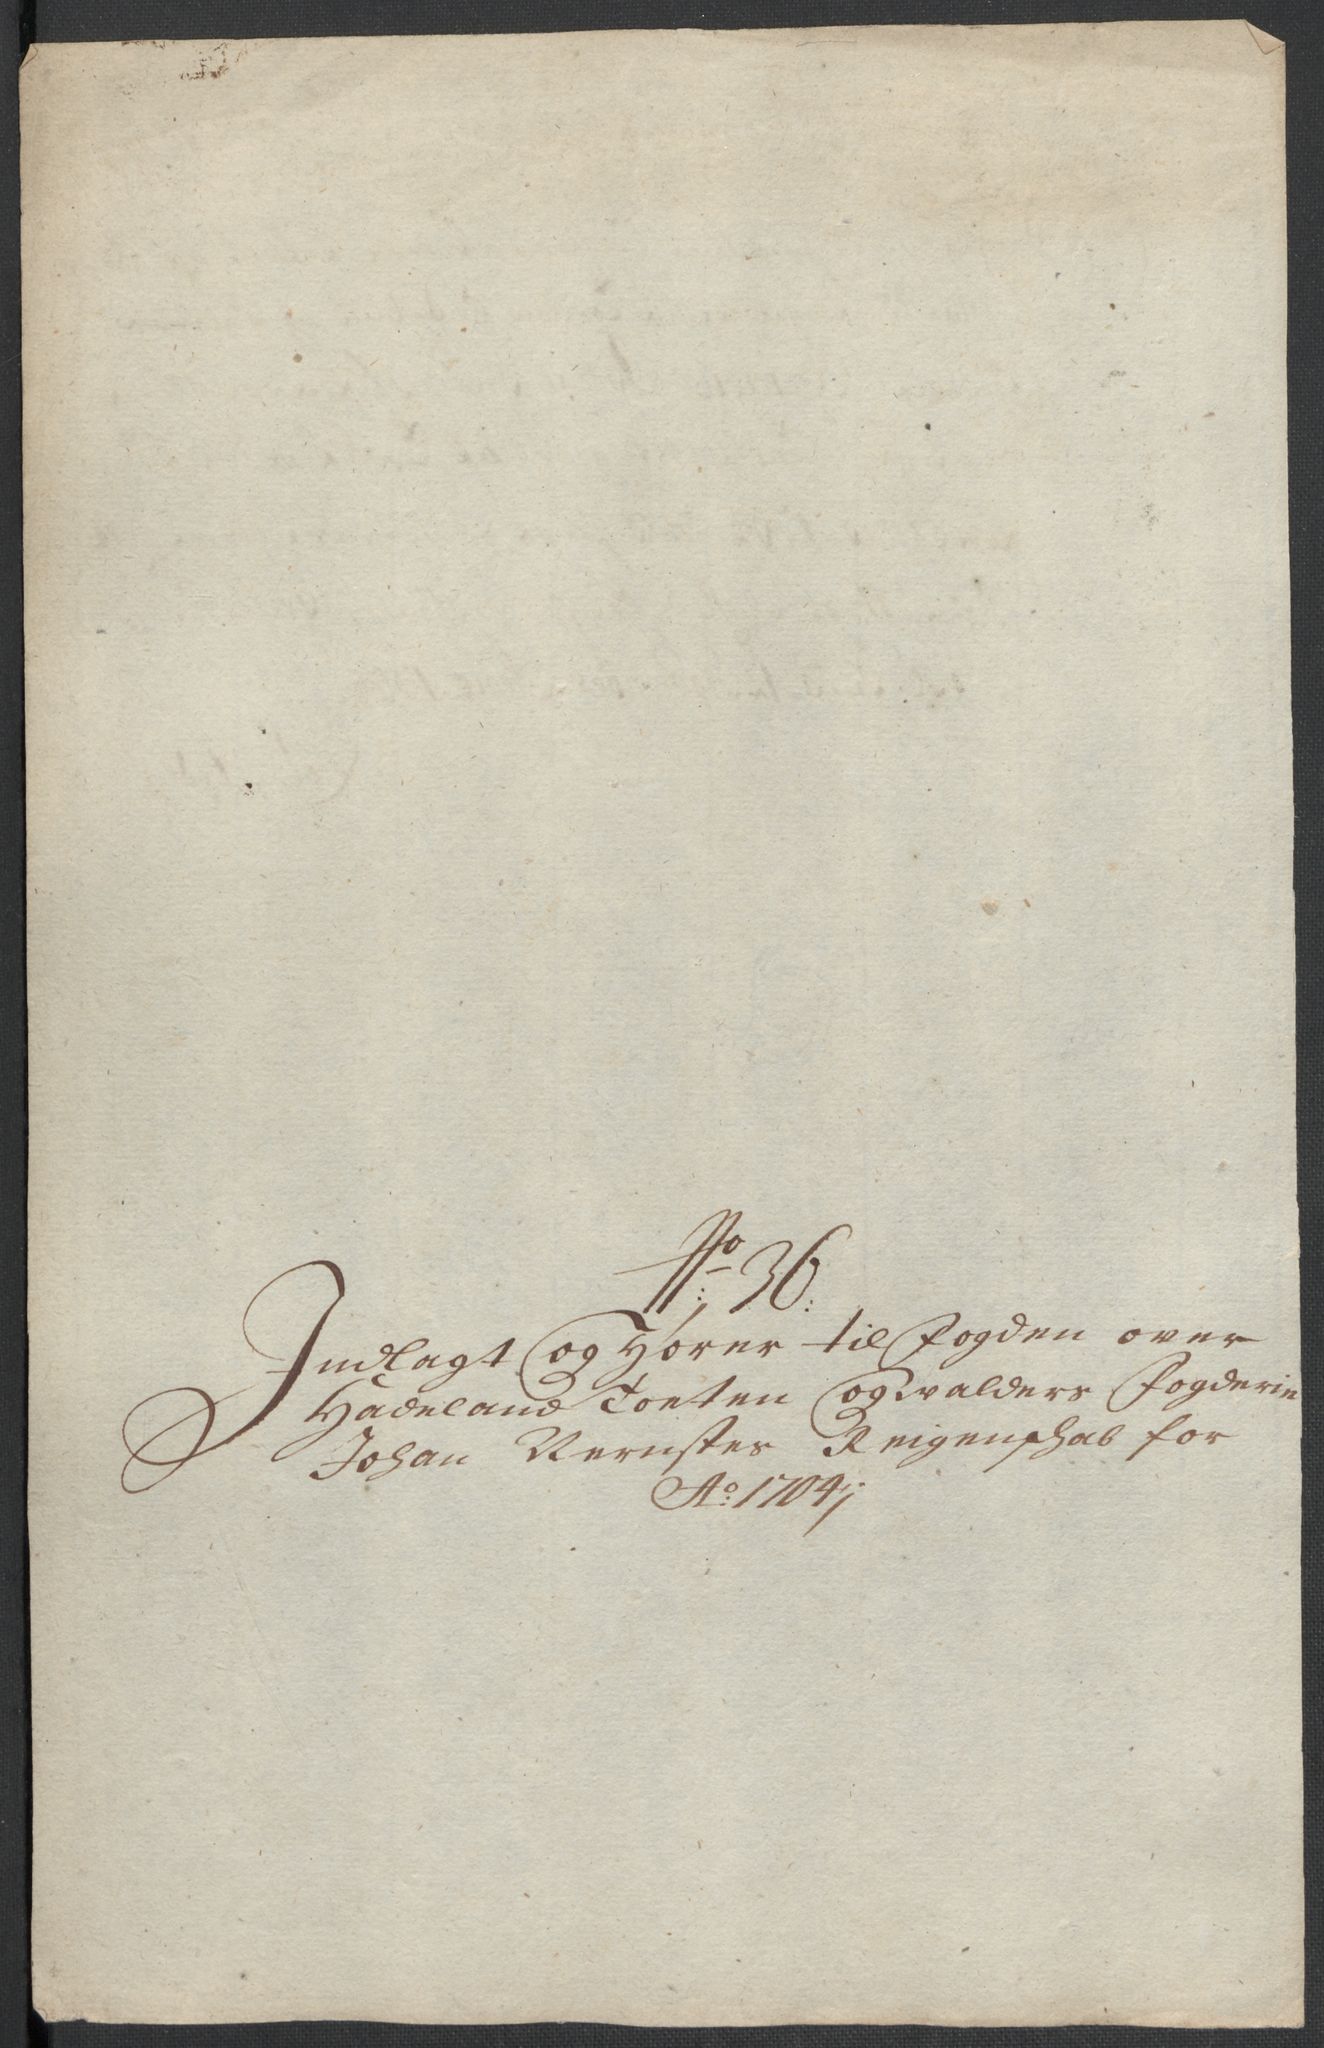 No: 36:
Indlagt og Hører til fogden over
Hadeland Toeten og Walders fogderie
Johan Vernstes Reigenschab for
Ao: 1704